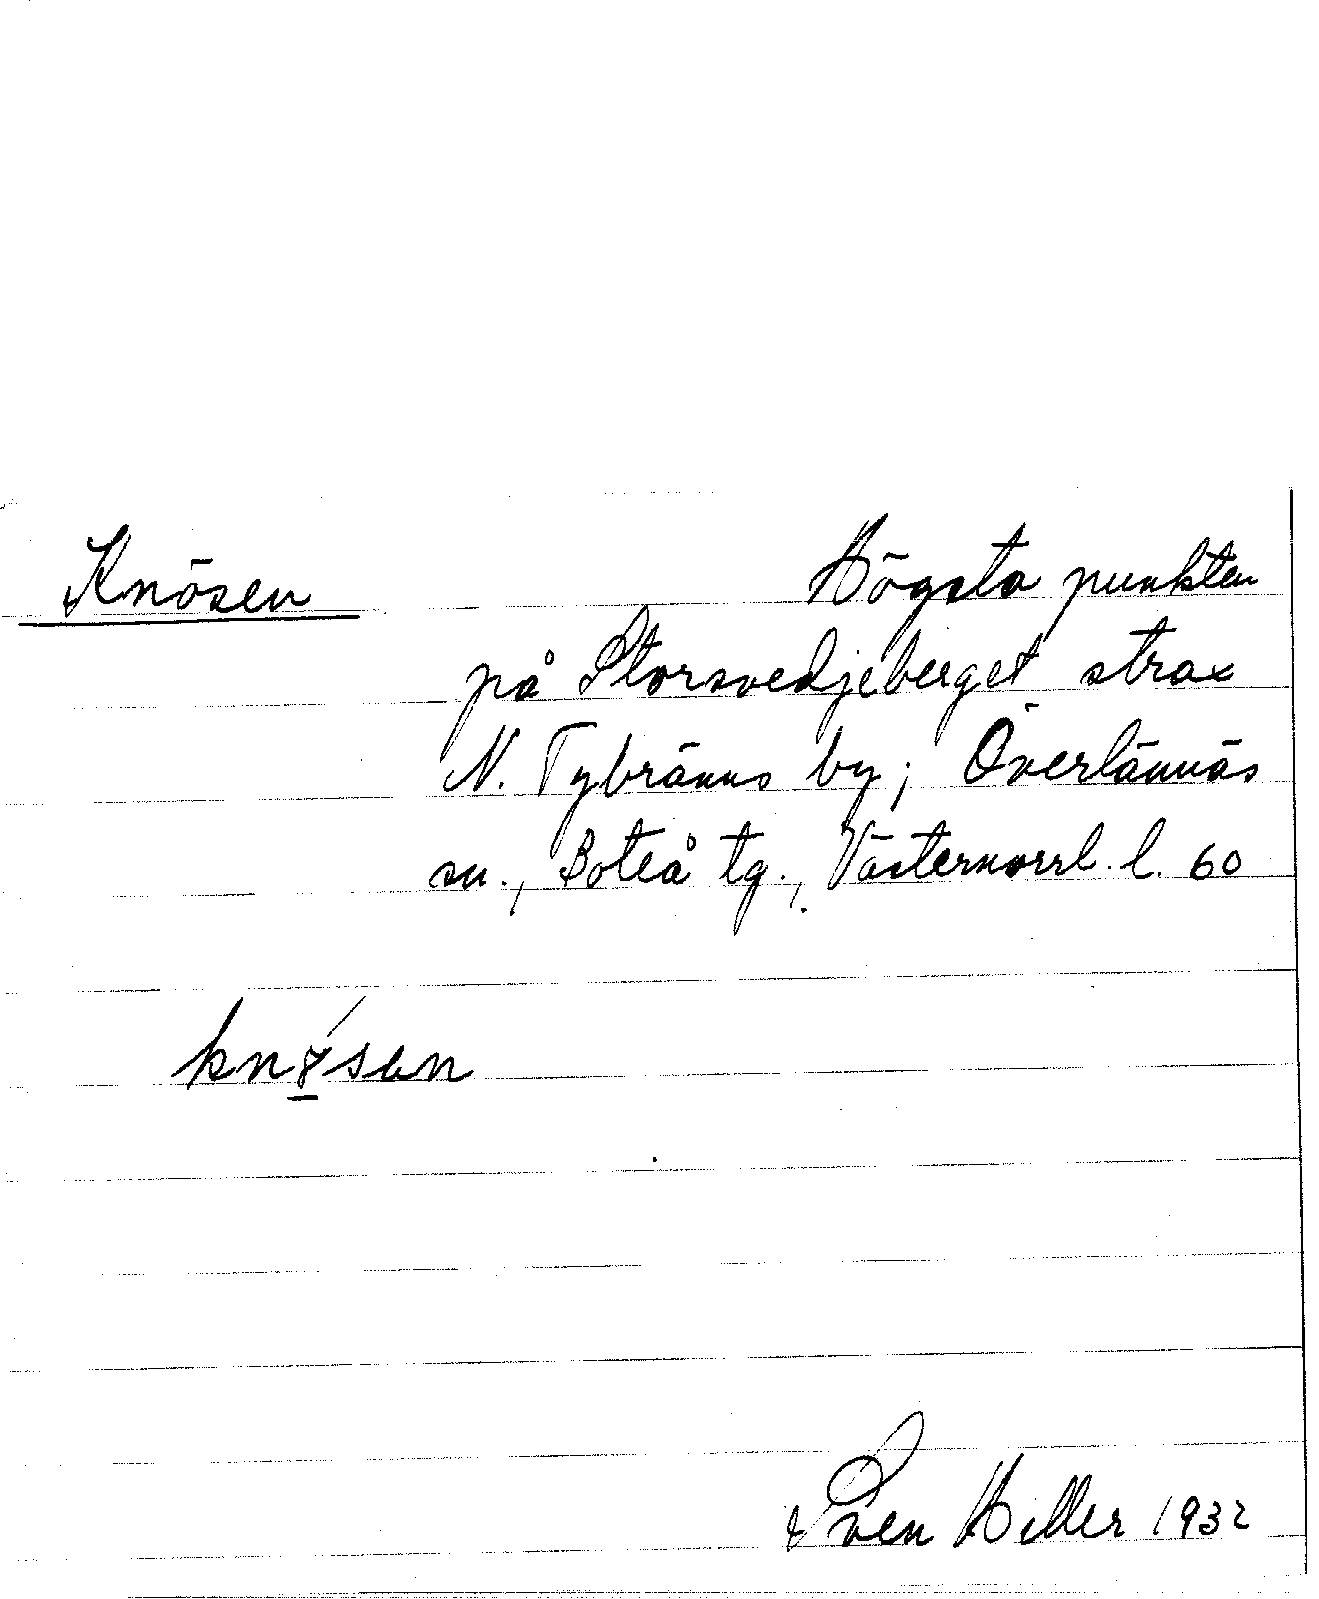 Knösen Högsta punkten
på Storsvedjeberget strax
N. Tybränns by; Överlännäs
sn., Boteå tg., Västernorrl. l. 60
Sven Hiller 1932